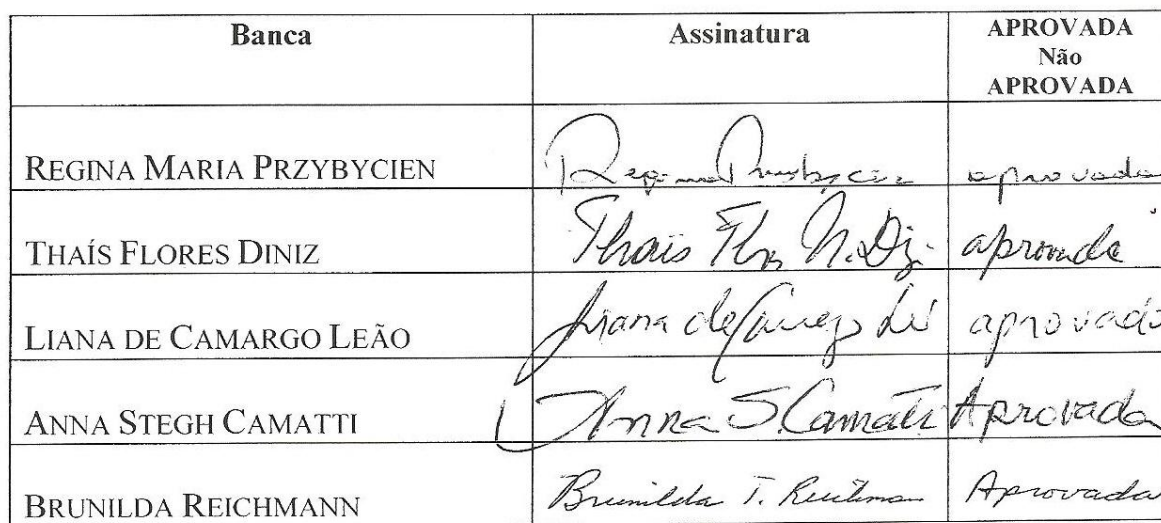 Banca Assinatura APROVADA
Não
APROVADA
REGINA MARIA PRZYBYCIEN Regina Przybycien aprovada
THAÍS FLORES DINIZ Thaïs Flores N. Diniz aprovada
LIANA DE CAMARGO LEÃO Liana de Camargo Leão aprovada
ANNA STEGH CAMATTI Anna S. Camati Aprovada
BRUNILDA REICHMANN Brunilda T. Reichmann Aprovada